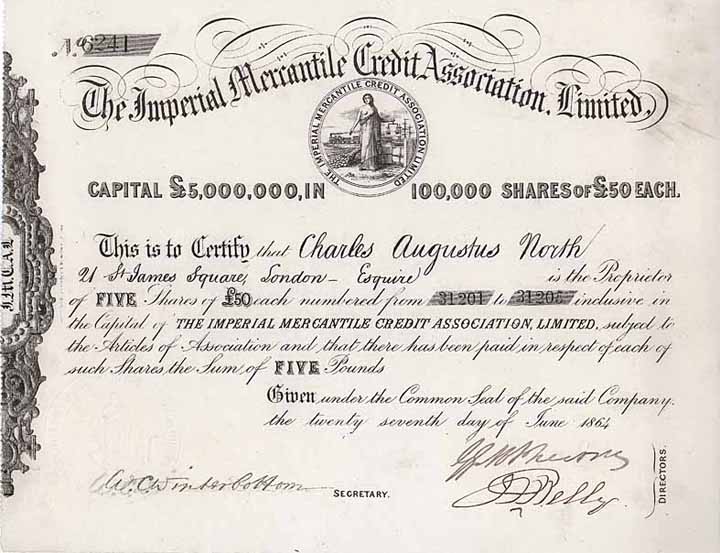 No 6241
The Imperial Mercantile Credit Association, Limited,
THE IMPERIAL MERCANTILE CREDIT ASSOCIATION LIMITED
CAPITAL £5,000,000, IN 100,000 SHARES OF £50 EACH.
This is to Certify that Charles Augustus North
21 St James Square, London - Esquire is the Proprietor
of FIVE Shares of £50 each numbered from 31201 to 31205 inclusive in
the Capital of THE IMPERIAL MERCANTILE CREDIT ASSOCIATION, LIMITED, subject to
the Articles of Association and that there has been paid in respect of each of
such Shares the Sum of FIVE Pounds
Given under the Common Seal of the said Company.
the twenty seventh day of June 1864
W. C. Winterbottom
SECRETARY.
DIRECTORS.